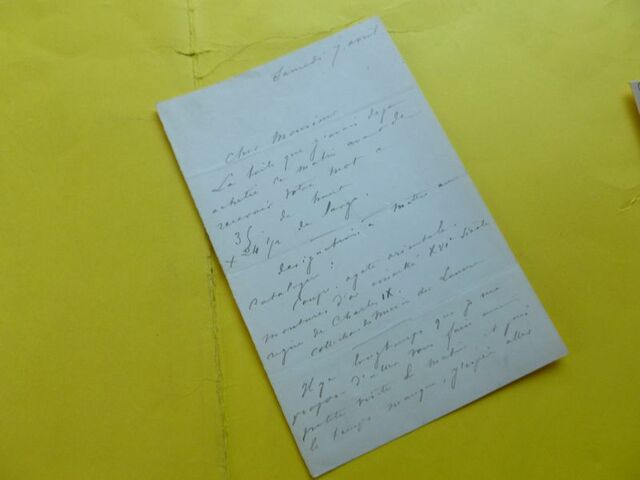 Samedi 7 avril
Cher Monsieur
La toile que j'avais déjà
achetée ce matin avant de
recevoir votre mot a
35 de haut
x 24 1/2 de large.
désignation à mettre au
Catalogue :
Coupe agate orientale.
monture d'or émaillé XVIe siècle
règne de Charles IX.
Collection du Musée du Louvre
Il y a longtemps que je me
propose d'aller vous faire une
petite visite le matin, et puis
le temps manque, j'espère aller